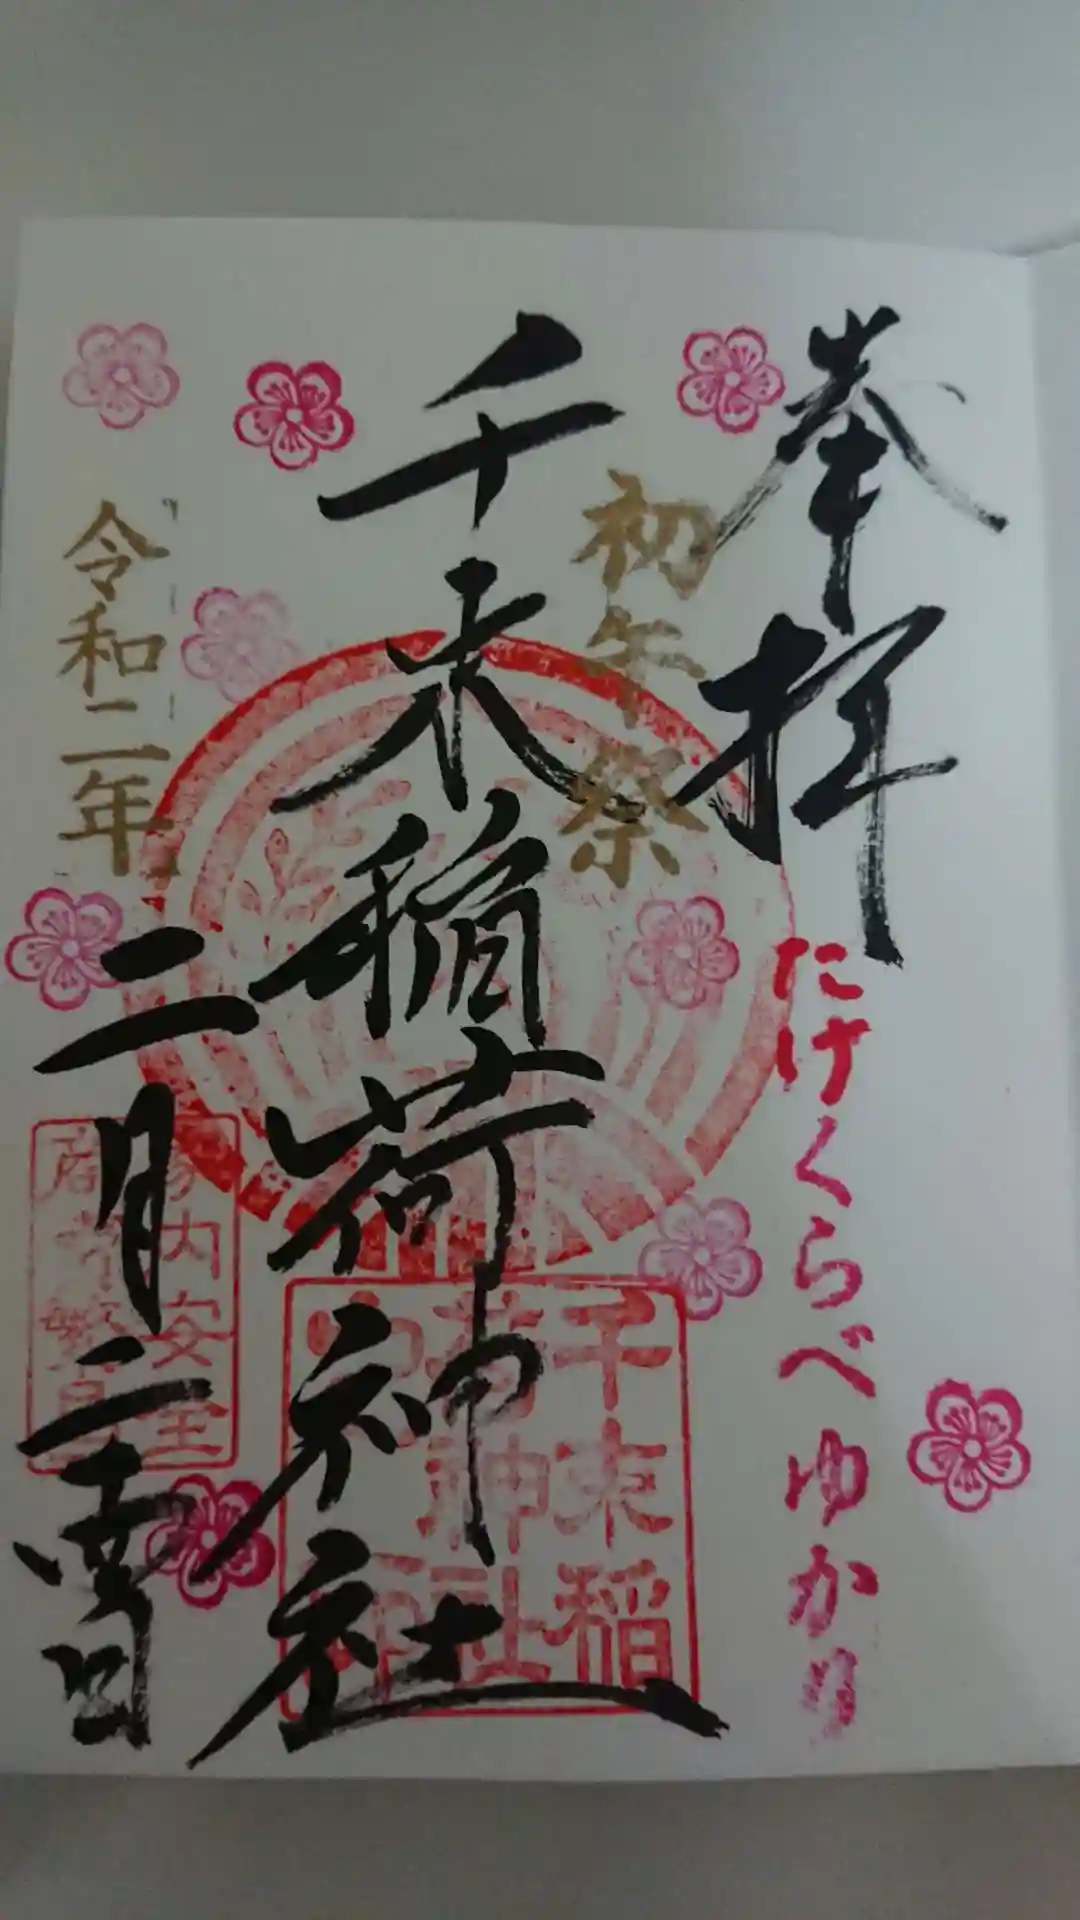 奉拝
たけくらべゆかり
初午祭
千束稲荷神社
千束稲
荷神社
令和二年
二月二十四日
家内安全
商売繁昌